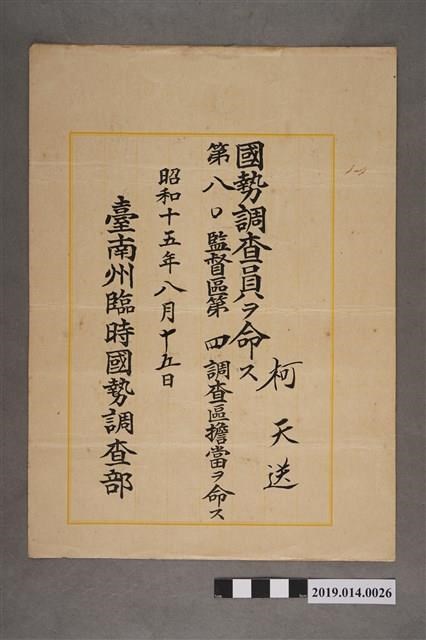 柯天送
國勢調查員ヲ命ス
第八〇監督區第四調查區擔當ヲ命ス
昭和十五年八月十五日
臺南州臨時國勢調查部
2019.014.0026